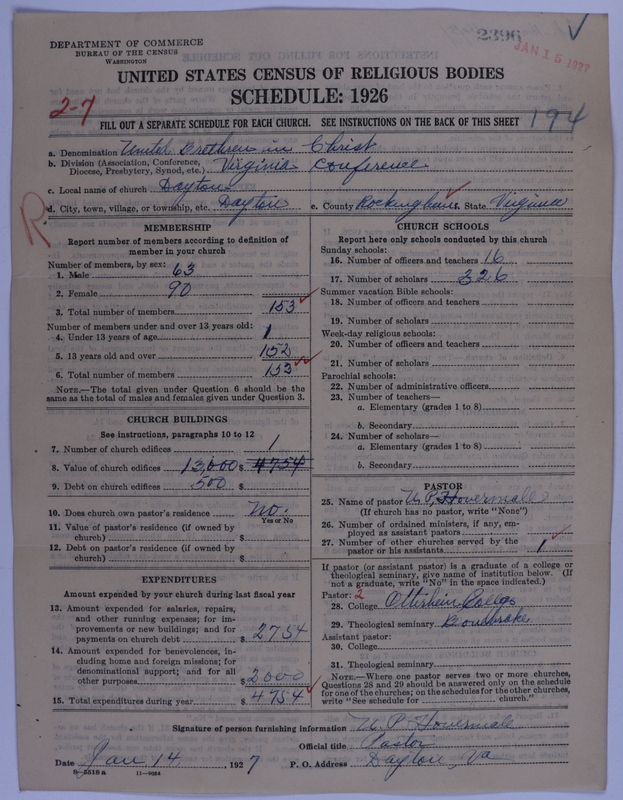 2396
JAN 15 1927
DEPARTMENT OF COMMERCE
BUREAU OF THE CENSUS
WASHINGTON
UNITED STATES CENSUS OF RELIGIOUS BODIES
SCHEDULE: 1926
2-7
194
FILL OUT A SEPARATE SCHEDULE FOR EACH CHURCH. SEE INSTRUCTIONS ON THE BACK OF THIS SHEET
a. Denomination United Brethren in Christ
b. Division (Association, Conference, Diocese, Presbytery, Synod, etc.) Virginia Conference
c. Local name of church Dayton
R
d. City, town, village, or township, etc. Dayton e. County Rockingham State Virginia
MEMBERSHIP
Report number of members according to definition of
member in your church
Number of members, by sex:
1. Male 63
2. Female 90
3. Total number of members 153
Number of members under and over 13 years old:
4. Under 13 years of age 1
5. 13 years old and over 152
6. Total number of members 153
NOTE.—The total given under Question 6 should be the
same as the total of males and females given under Question 3.
CHURCH BUILDINGS
See instructions, paragraphs 10 to 12
7. Number of church edifices 1
8. Value of church edifices 13,000 $ 4754
9. Debt on church edifices 500 $
10. Does church own pastor's residence No.
Yes or No
11. Value of pastor's residence (if owned by
church) $
12. Debt on pastor's residence (if owned by
church) $
EXPENDITURES
Amount expended by your church during last fiscal year
13. Amount expended for salaries, repairs,
and other running expenses; for im-
provements or new buildings; and for
payments on church debt $ 2754
14. Amount expended for benevolences, in-
cluding home and foreign missions; for
denominational support; and for all
other purposes $ 2000
15. Total expenditures during year $ 4754
CHURCH SCHOOLS
Report here only schools conducted by this church
Sunday schools:
16. Number of officers and teachers 16
17. Number of scholars 326
Summer vacation Bible schools:
18. Number of officers and teachers
19. Number of scholars
Week-day religious schools:
20. Number of officers and teachers
21. Number of scholars
Parochial schools:
22. Number of administrative officers
23. Number of teachers—
a. Elementary (grades 1 to 8)
b. Secondary
24. Number of scholars—
a. Elementary (grades 1 to 8)
b. Secondary
PASTOR
25. Name of pastor U. P. Hovermale
(If church has no pastor, write "None")
26. Number of ordained ministers, if any, em-
ployed as assistant pastors
27. Number of other churches served by the
pastor or his assistants 1
If pastor (or assistant pastor) is a graduate of a college or
theological seminary, give name of institution below. (If
not a graduate, write "No" in the space indicated.)
Pastor: 2
28. College Otterbein College
29. Theological seminary Bonebrake
Assistant pastor:
30. College
31. Theological seminary
NOTE.—Where one pastor serves two or more churches,
Questions 28 and 29 should be answered only on the schedule
for one of the churches; on the schedules for the other churches,
write "See schedule for church."
Signature of person furnishing information U. P. Hovermale
Official title Pastor
Date Jan 14, 1927 P. O. Address Dayton, Va
8-5518 a 11-9084